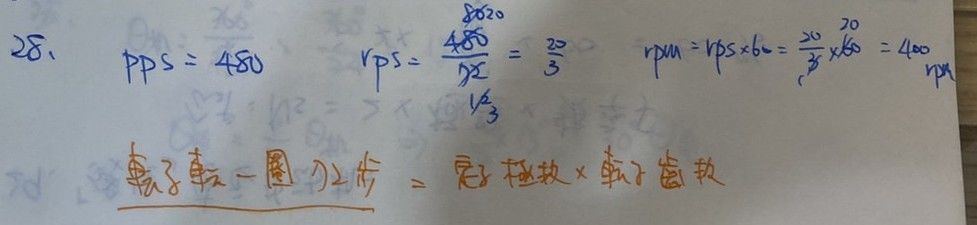 28. pps = 480 rps = 480/72 = 20/3 rpm = rps × 60 = 20/3 × 60 = 400 rpm
転子転一圈72步 = 定子極数 × 転子齒数